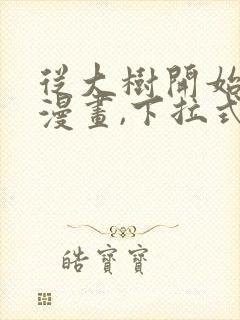 從大樹開始
漫畫,下拉式
皓寶寶